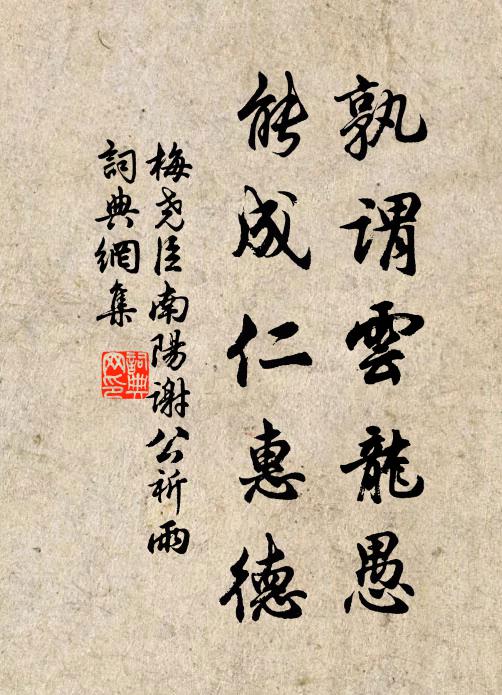 孰謂雲龍愚
能成仁惠德
梅堯臣南陽謝公祈雨
詞典網集
詞典網印